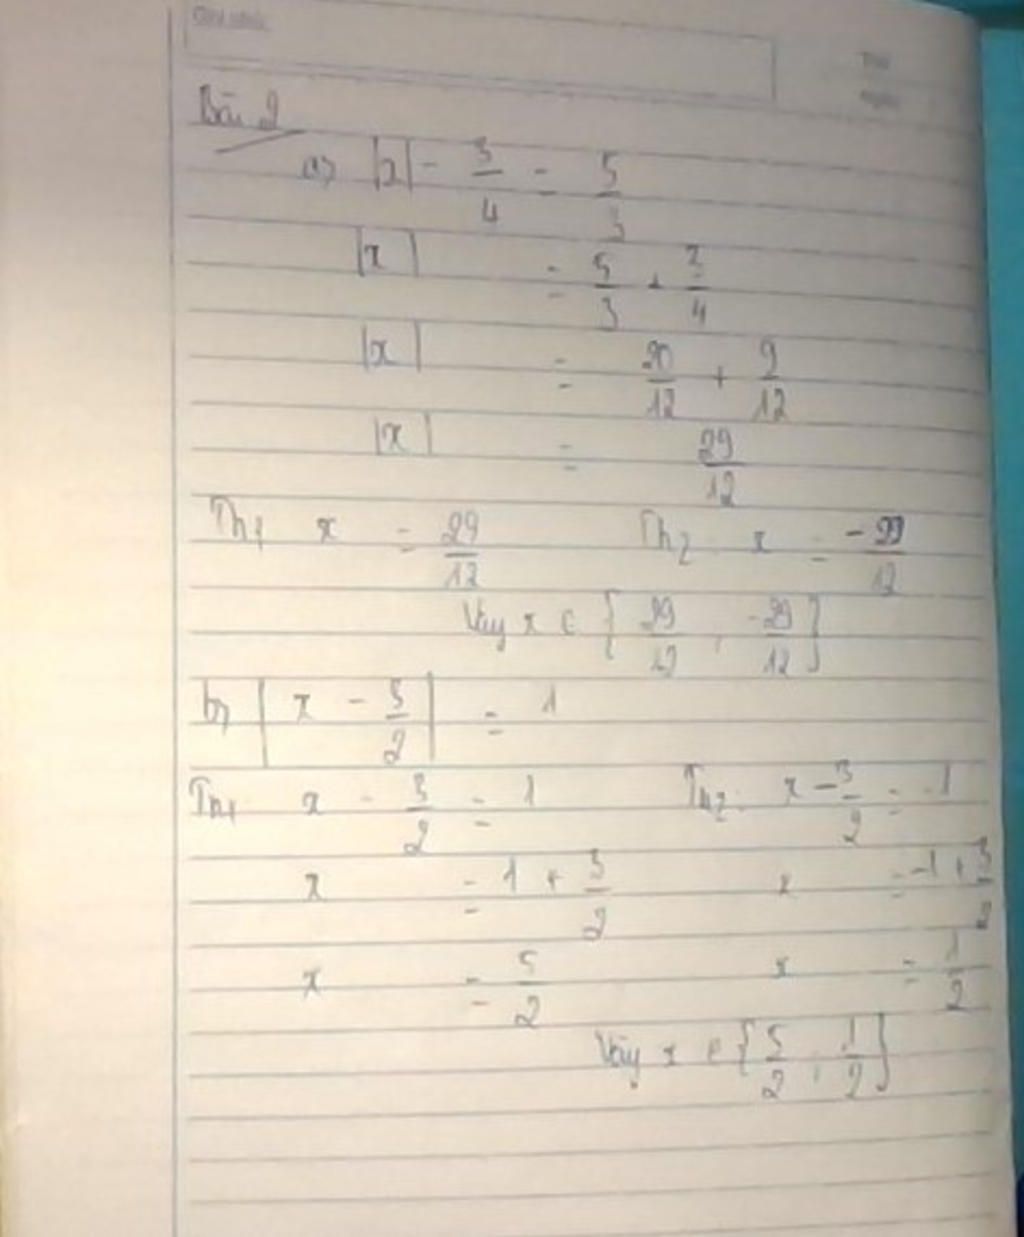 Bài 2
a) |x| - 3/4 = 5/3
|x| = 5/3 + 3/4
|x| = 20/12 + 9/12
|x| = 29/12
Th1 x = 29/12 Th2 x = -29/12
Vậy x ∈ { 29/12 , -29/12 }
b) | x - 3/2 | = 1
Th1 x - 3/2 = 1 Th2 x - 3/2 = -1
x = 1 + 3/2 x = -1 + 3/2
x = 5/2 x = 1/2
Vậy x ∈ { 5/2 , 1/2 }